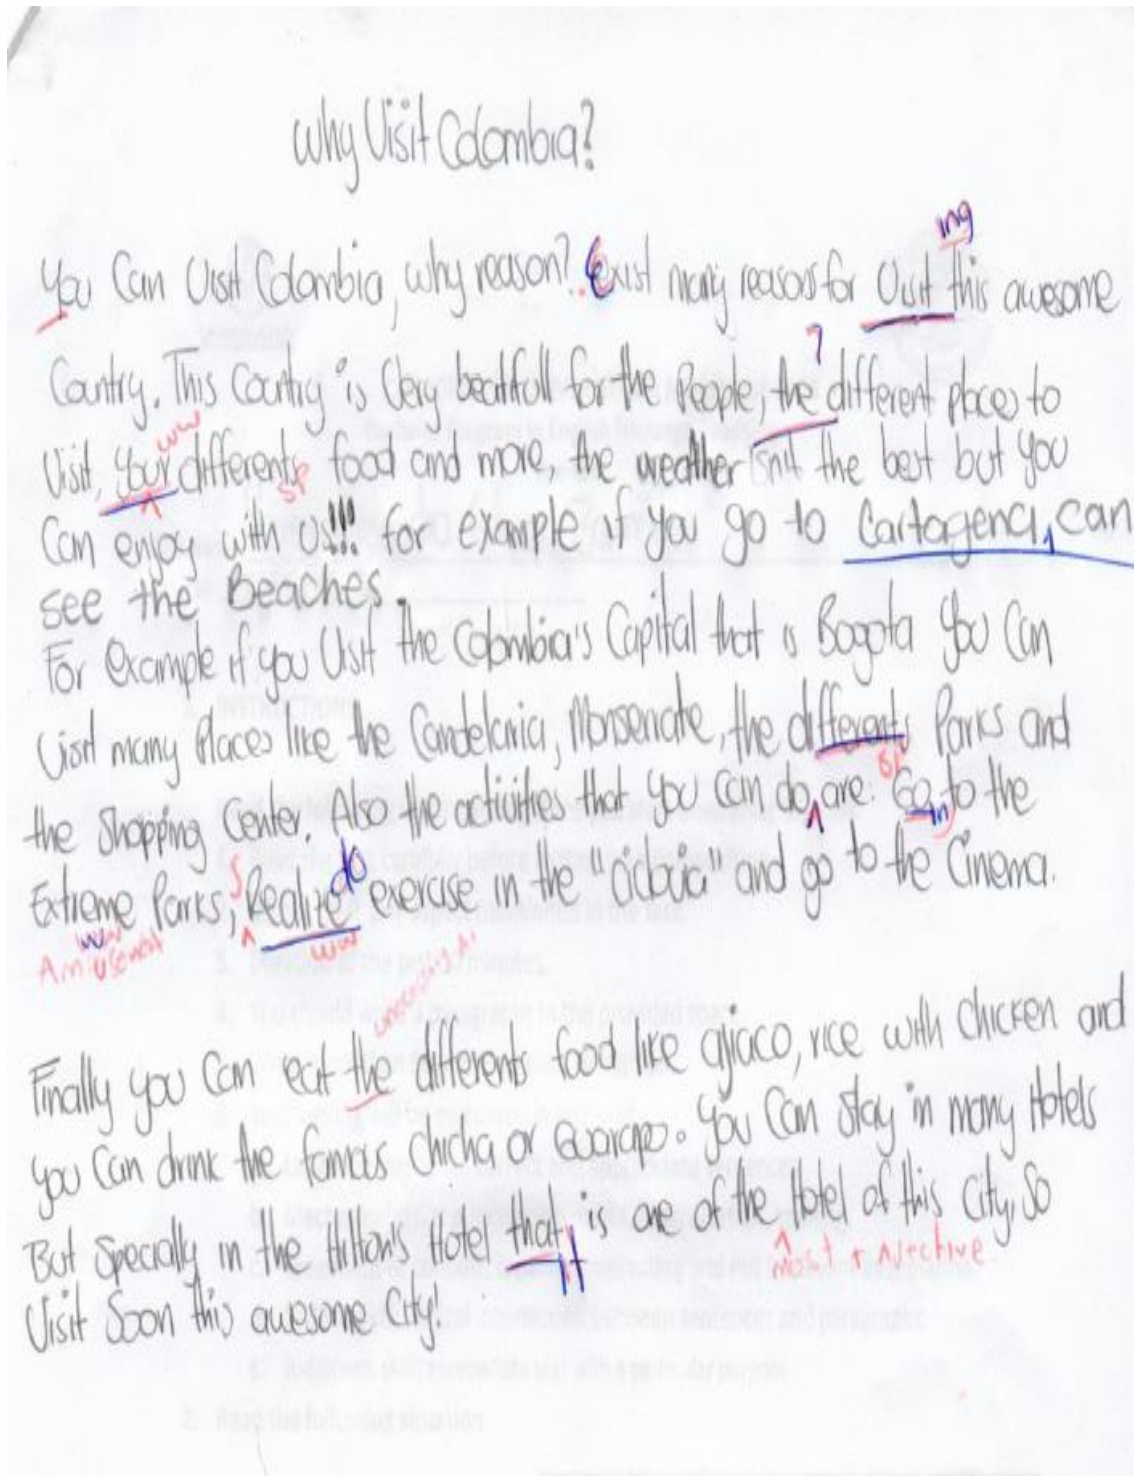 Why Visit Colombia?
ing
You Can Visit Colombia, why reason? exist many reasons for Visit this awesome
?
Country. This Country is Very beatifull for the People, the different places to
ww
Visit, your differents food and more, the weather isn't the best but you
sp
Can enjoy with U!!! for example if you go to Cartagena, can
see the Beaches.
For example if you Visit the Colombia's Capital that is Bogota You Can
Visit many Places like the Candelaria, Monserrate, the differents Parks and
sp
the Shopping Center. Also the activities that you can do are: Go to the
in
s do
Extreme Parks, Realize exercise in the "ciclovia" and go to the Cinema.
ww ww
Amusement
Finally you Can eat the differents food like ajiaco, rice with Chicken and
you Can drink the famous chicha or Guarapo. You Can stay in many Hotels
But Specially in the Hilton's Hotel that is one of the Hotel of this City, So
most + Ajective
Visit Soon this awesome City!
INSTRUCTIONS
Read the following situation